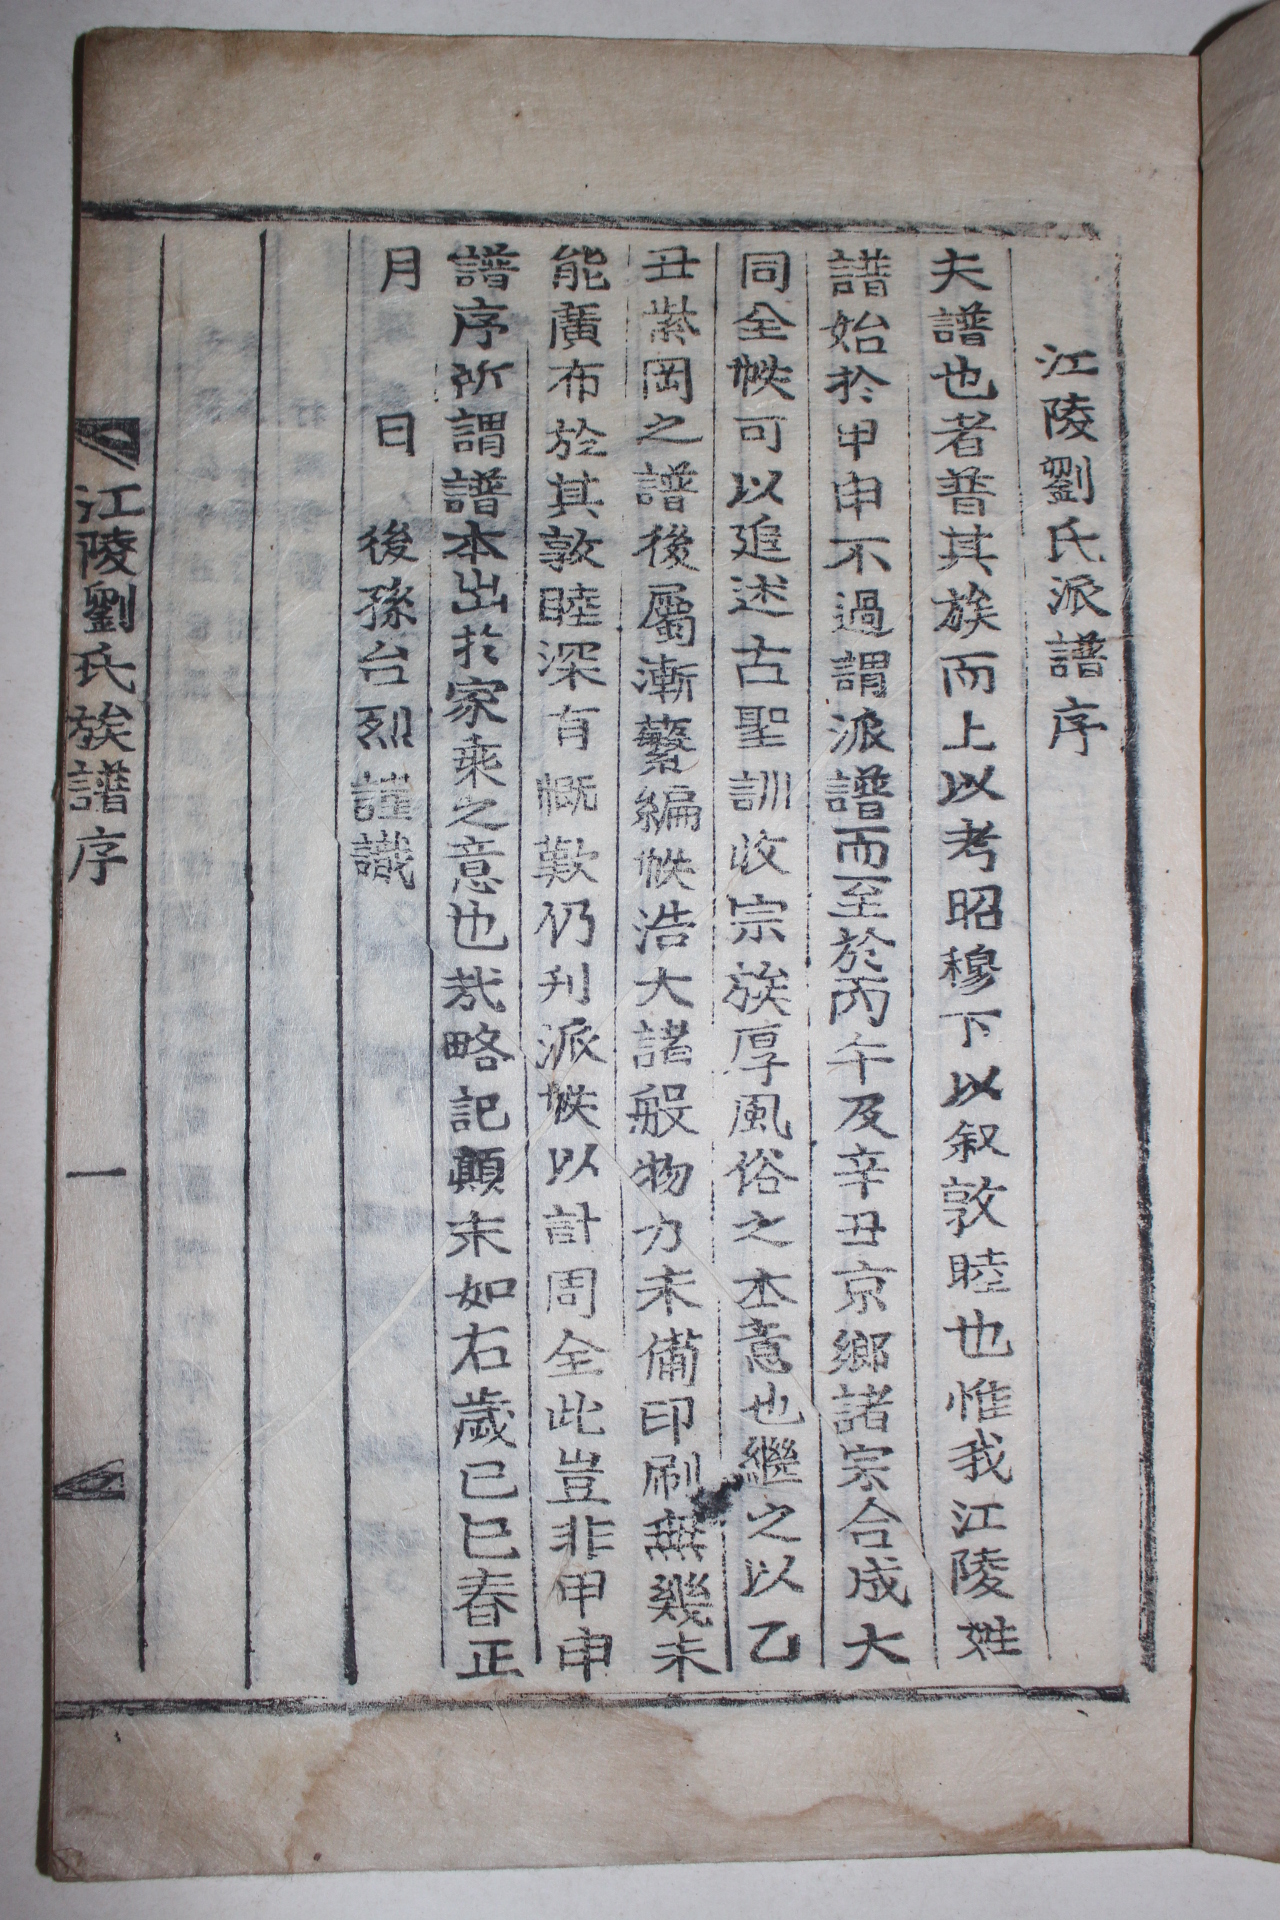 江陵劉氏派譜序
夫譜也者普其族而上以考昭穆下以叙敦睦也惟我江陵姓
譜始於甲申不過謂派譜而至於丙午及辛丑京鄉諸宗合成大
同全帙可以追述古聖訓收宗族厚風俗之本意也繼之以乙
丑紫岡之譜後屬漸蘩編帙浩大諸般物力未備印刷無幾未
能廣布於其敦睦深有慨歎仍刋派帙以計周全此豈非甲申
譜序所謂譜本出於家乘之意也哉略記顛末如右歲己巳春正
月 日 後孫台烈謹識
江陵劉氏族譜序 一